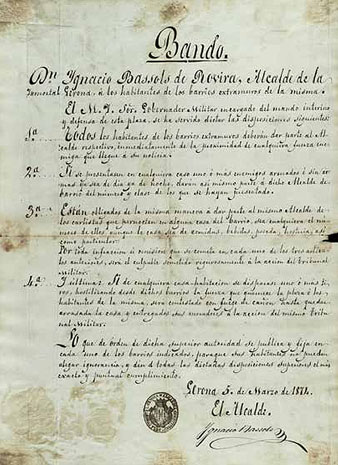 Bando.
Dn. Ignacio Bassols de Rovira, Alcalde de la
Inmortal Gerona, á los habitantes de los barrios extramuros de la misma:
El M. I. Sór. Gobernador Militar encargado del mando interino
y defensa de esta plaza, se ha servido dictar las disposiciones siguientes:
1ª. Todos los habitantes de los barrios extramuros deberán dar parte al Al-
calde respectivo, inmediatamente de la proximidad de cualquiera fuerza ene-
miga que llegue á su noticia.
2ª. Si se presentasen en cualquier caso uno ó mas enemigos armados ó sin ar-
mas ya sea de dia ya de noche, darán asi mismo parte á dicho Alcalde de
barrio del número y clase de los que se hayan presentado.
3ª. Están obligados de la misma manera á dar parte al mismo Alcalde de
los carlistas que pernocten en alguna casa del barrio, sea cualquiera el nú-
mero de ellos aunque la casa sea de comidas, bebidas, posada, hostería, así
como particular.
Por toda infraccion ú omision que se cometa en cada uno de los tres artícu-
los anteriores, será el culpable sometido á la accion del tribunal
Militar.
4ª. Y última. Si de cualquiera casa habitacion se disparase uno ó mas ti-
ros, hostilizando desde dichos barrios la fuerza que guarnece la plaza ó los
habitantes de la misma, será contestado con fuego de cañon hasta quedar
arrasada la casa y entregados sus moradores á la accion del mismo tribu-
nal Militar.
Lo que de orden de dicha superior autoridad se publica y fija en
cada uno de los barrios indicados, para que sus habitantes no puedan
alegar ignorancia, y den á todas las dichas disposiciones superiores el mas
exacto y puntual cumplimiento.
Gerona 5. de Marzo de 1874.
El Alcalde.
Ignacio Bassols